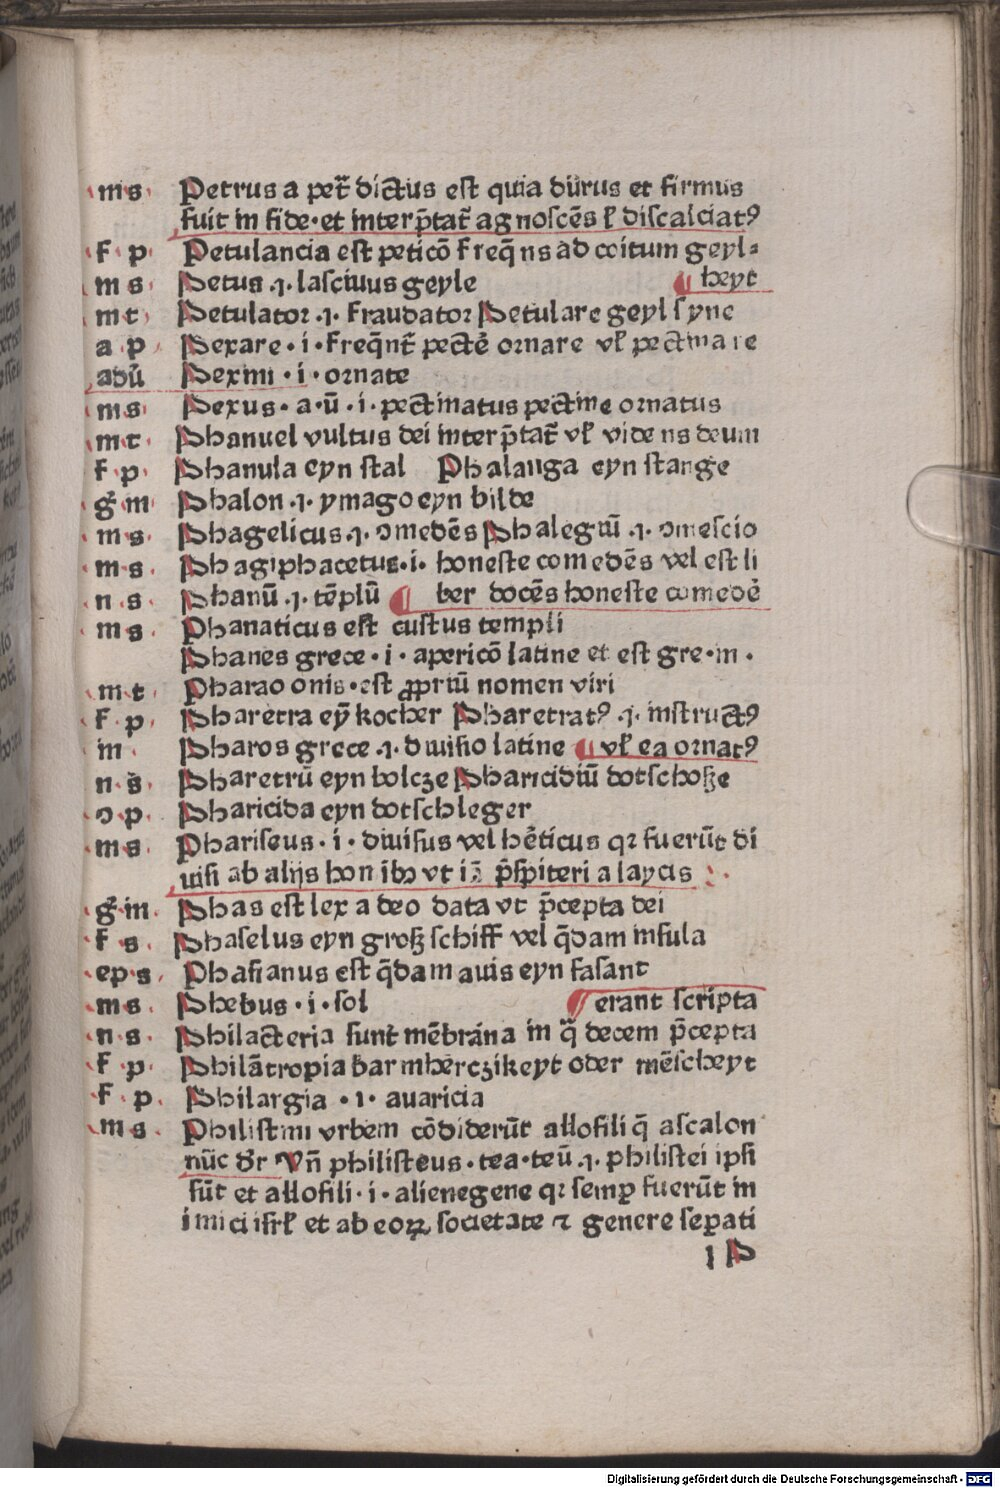 m s Petrus a pet̄ dictus est quia durus et firmus
fuit in fide·et interp̄tat̄ agnoscēs ł discalciatꝰ
f p Petulancia est peticō freq̄ns ad coitum geyl⸗
m s Petus .i. lasciuus geyle ¶ heyt
m t Petulator .i. fraudator Petulare geyl syne
a p Pexare·i·freq̄nt̄ pectē ornare vł pectinare
adū Pexim·i·ornate
m s Pexus·a·ū·i·pectinatus pectine ornatus
m t Phanuel vultus dei interp̄tat̄ vł videns deum
f p Phanula eyn stal Phalanga eyn stange
ḡ m Phalon .i. ymago eyn bilde
m s Phagelicus .i. ↄmedēs Phalegiū .i. ↄmescio
m s Phagiphacetus·i·honeste comedēs vel est li
n s Phanū .i. tēplū ¶ ber docēs honeste comedē
m s Phanaticus est custus templi
Phanes grece·i·apericō latine et est gre·m·
m t Pharao onis·est ꝓpriū nomen viri
f p Pharetra eȳ kocher Pharetratꝰ .i. instructꝰ
m Pharos grece .i. diuisio latine ¶ vł ea ornatꝰ
n s Pharetrū eyn bolcze Pharicidiū dotschoße
ↄ p Pharicida eyn dotschleger
m s Phariseus·i·diuisus vel hēticus qꝛ fuerūt di
uisi ab alijs hominibꝫ vt iā p̄spiteri a laycis
ḡ m Phas est lex a deo data vt p̄cepta dei
f s Phaselus eyn groß schiff vel q̄dam insula
ep s Phasianus est q̄dam auis eyn fasant
m s Phebus·i·sol ¶ erant scripta
n s Philacteria sunt mēbrana in q̄ decem p̄cepta
f p Philātropia barmherczikeyt oder mēscheyt
f p Philargia·i·auaricia
m s Philistini vrbem cōdiderūt allofili q̄ ascalon
nūc dr̄ Vn̄ philisteus·tea·teū .i. philistei ipsi
sūt et allofili·i·alienegene qꝛ semꝑ fuerūt in
imici isrł et ab eoꝝ societate ⁊ genere seꝑati
l P
Digitalisierung gefördert durch die Deutsche Forschungsgemeinschaft · DFG